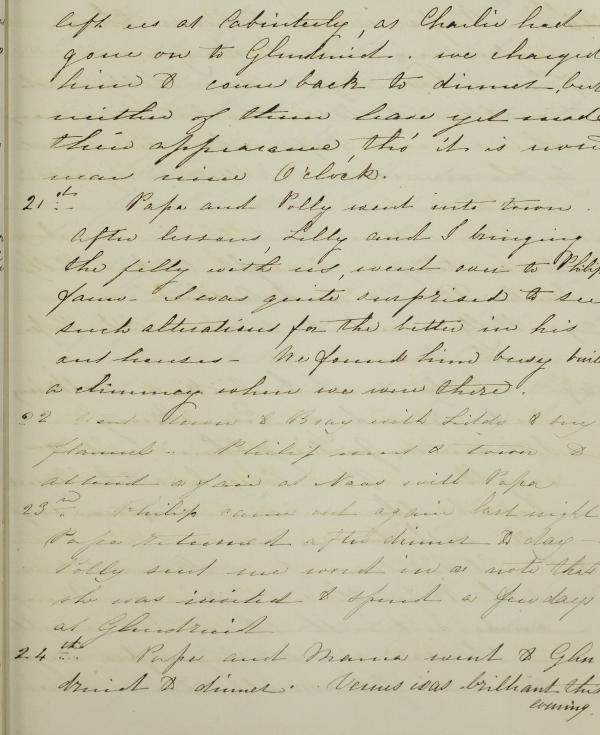 left us at Cabinteely, as Charlie had
gone on to Glendruid. we charged
him to come back to dinner, but
neither of them have yet made
their appearance, tho' it is now
near nine O'clock.
21st Papa and Polly went into town.
After lessons, Lilly and I bringing
the filly with us, went over to Philip
farm - I was quite surprised to see
such alterations for the better in his
out houses - We found him busy buil
a chimney when we were there.
22 Went down to Bray with to buy
flannel - Philip went to town to
attend a fair at Naas with Papa
23rd Philip came out again last night
Papa returned after dinner to day -
Polly sent me word in a note that
she was invited to spend a few days
at Glendruid
24th Papa and Mama went to Glen
druid to dinner. Venus was brilliant this
evening.